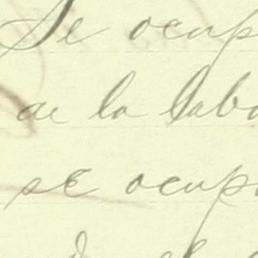 Se ocup
de la labo
se ocupa